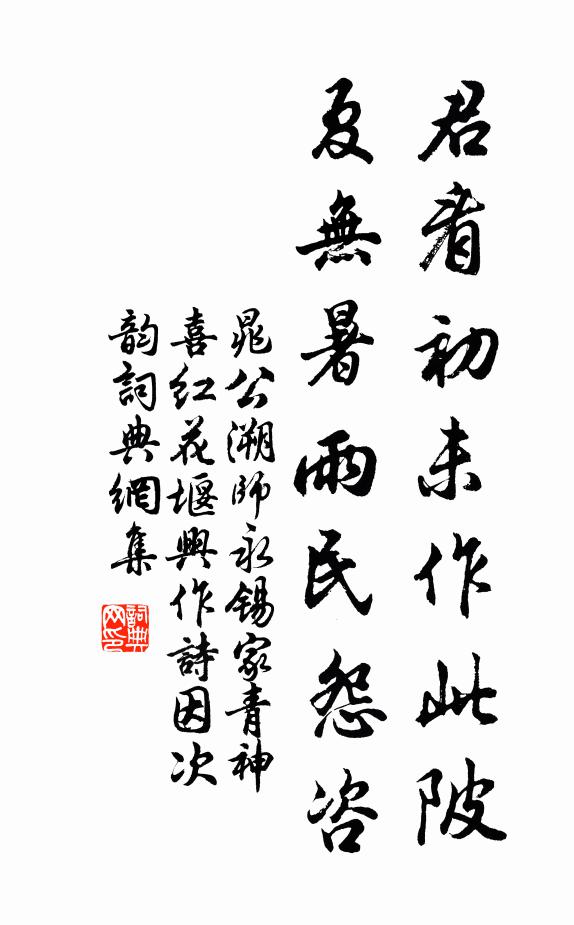 君看初未作此陂
夏無暑雨民怨咨
晁公溯師永錫家青神
喜紅花堰興作詩因次
韵詞典網集
詞典網印